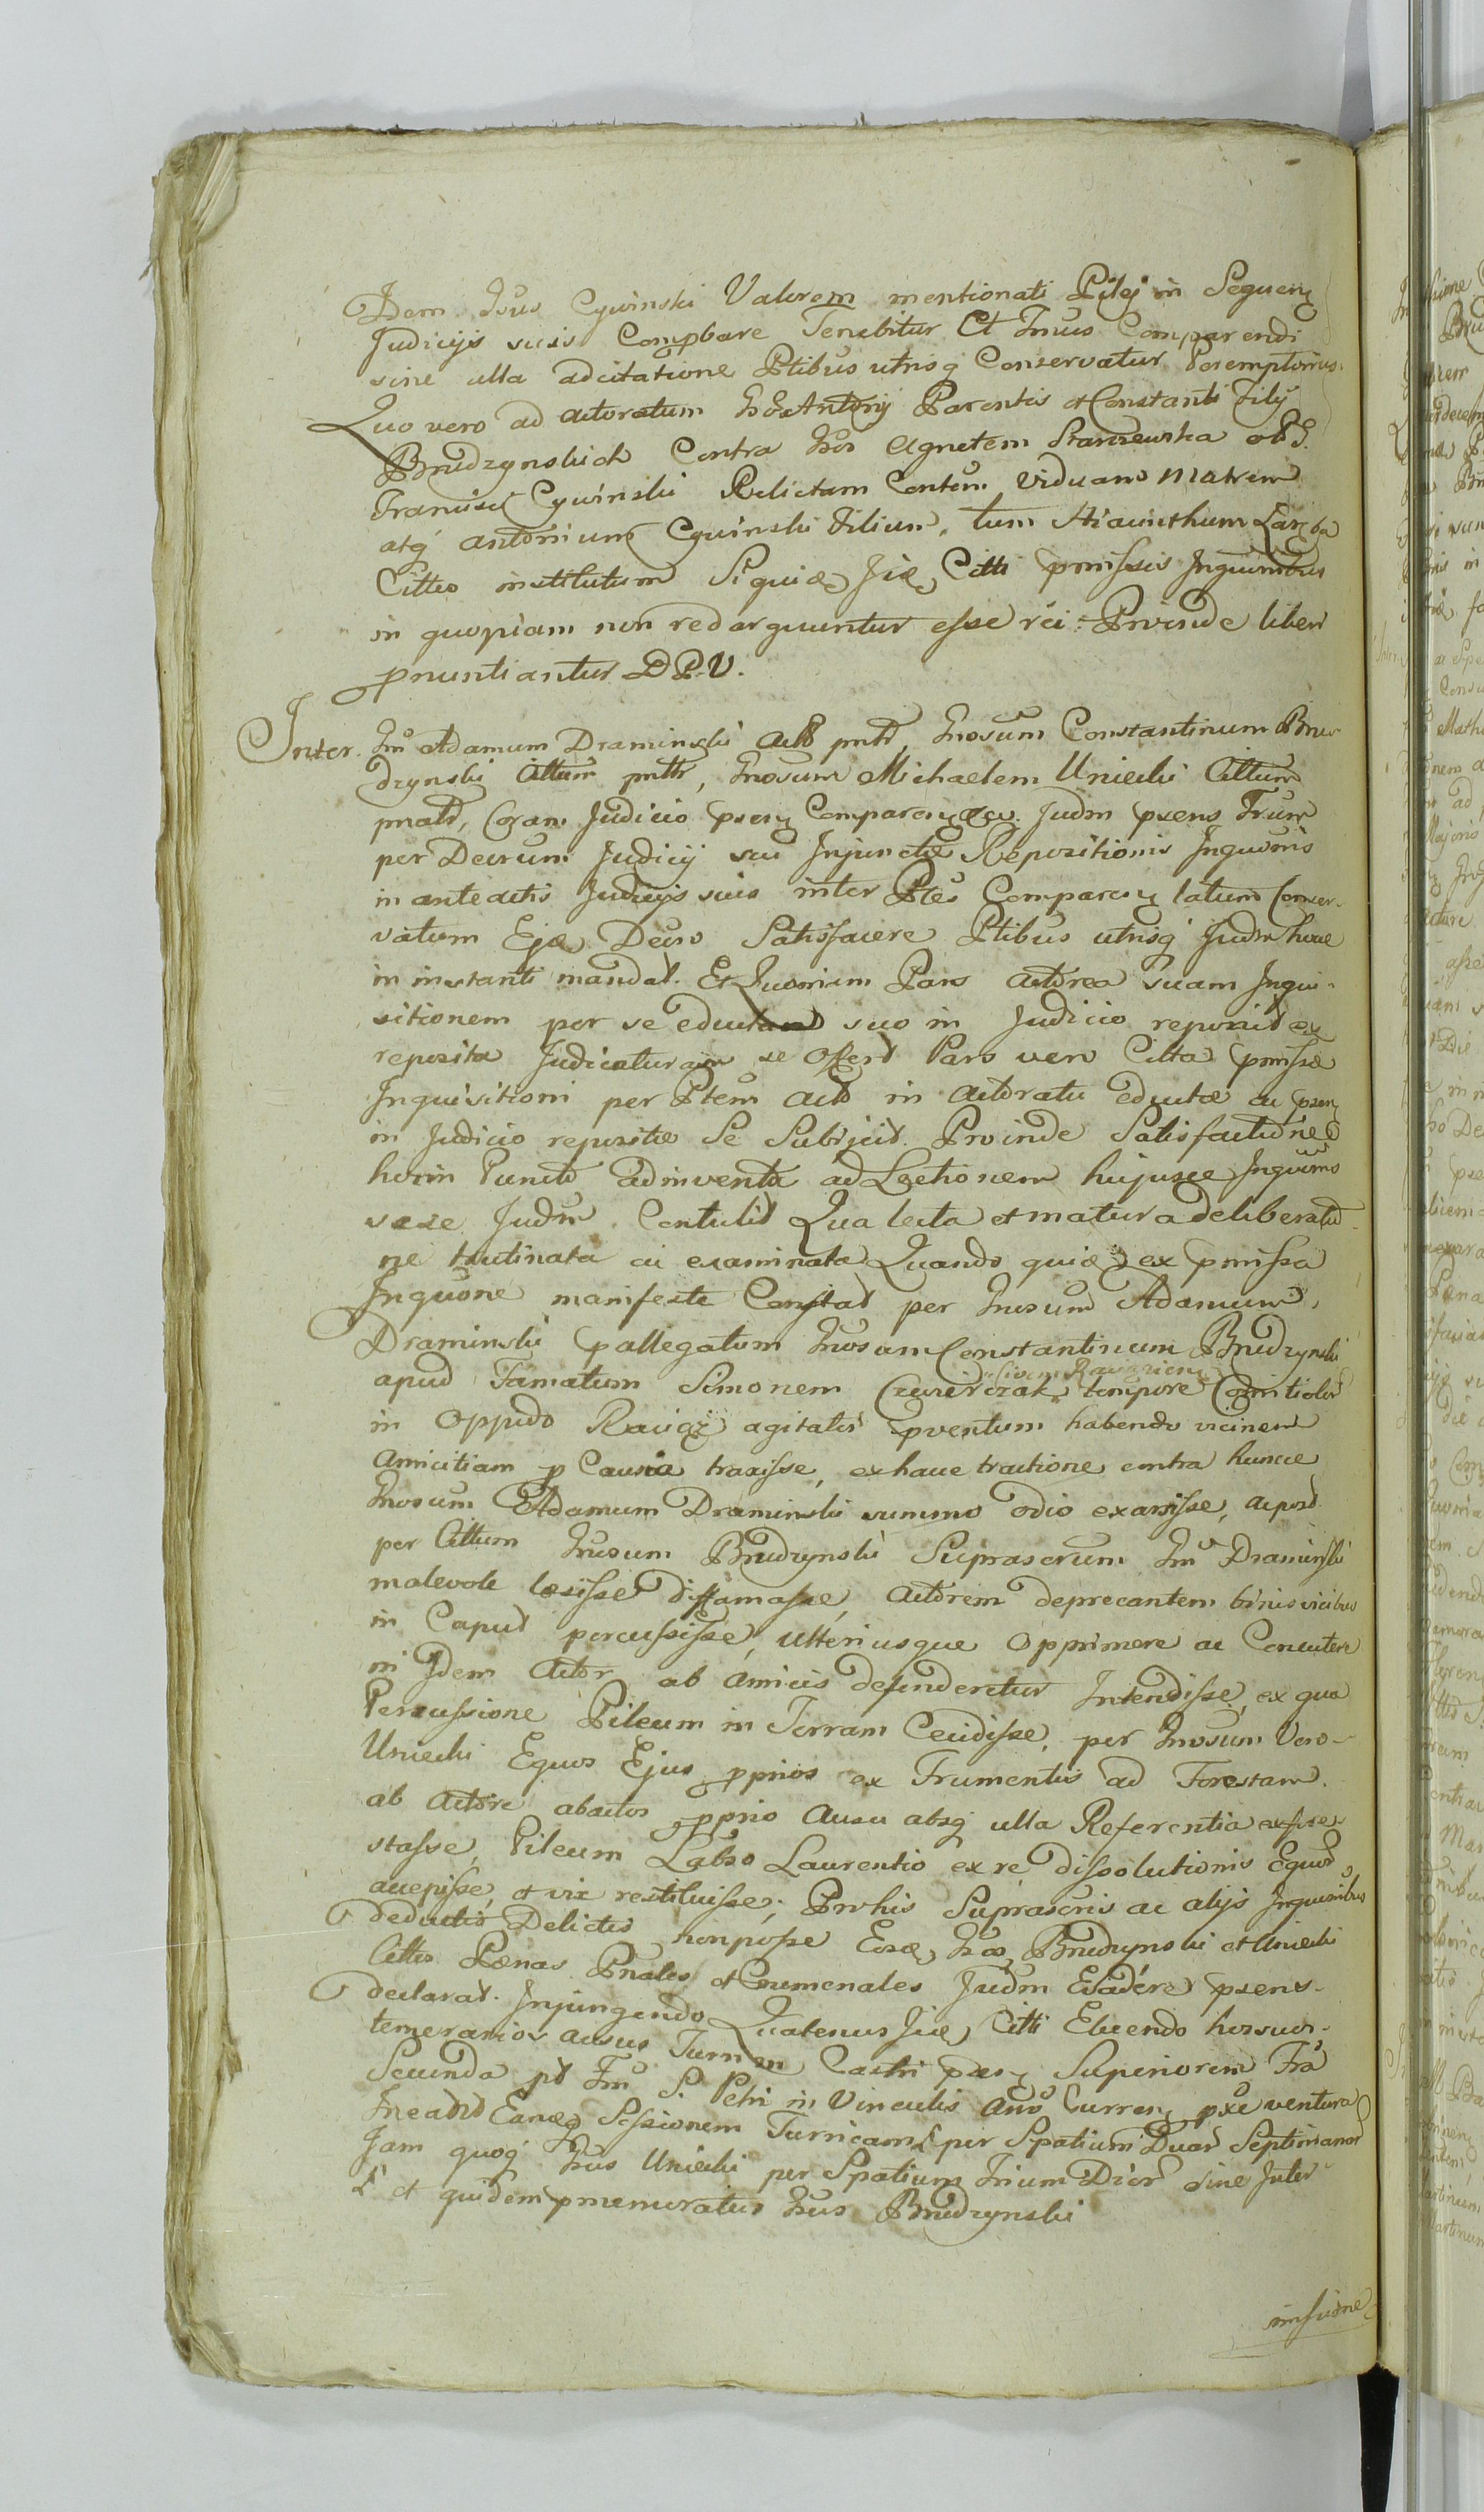 Idem Gsus Cywinski Valorem mentionati Pilej in Sequenq
Judicijs suis Compbare Tenebitur Et Tmus Comparendi
sine ulla adcitatione Ptibus utrisq Conservatur Peremptorius.
Quo vero ad actoratum Antonij Parentis et Constanti Filij
Brudzynskich Contra Gsos Agnetem Staniewska olP.
Francisci Cywinski Relictam Contem Viduam Matrem
atq antonium Cywinski Filium, tum Hiacinthum
Cittos institutum Si quidem Citti pmissis Inquionibus
in quopiam non redarguuntur esse rei: Proinde liberi
pnuntiantur D P. V.
Inter. Gm Adamum Draminski Act pntt, Gnosum Constantinum Bru-
dzynski Cittum pntt, Gnosum Michaelem Uniecki Cittum
pnatt, Coram Judicio psenq Comparenq Judm psens Trum
per Decrum Judicij sui Injunctae Repositionis Inquonis
in anteactis Judicijs suis inter Ptes Comparenq latum Conser-
vatum Decso Satisfacere Ptibus utrisq Judm hocce
in instanti mandat. Et Quoniam Pars actorea suam Inqui-
sitionem per se eductam suo in Judicio reposuit ex
reposita Judicaturam se offert Pars vero Citta pmissae
Inquisitioni per Ptem Act in Actoratu eductae ac psenq
in Judicio repositae Se Subijcit. Proinde Satisfactione
hocin Puncto adinventa ad Lectionem hujusce Inquonis
sese Judm Contulit Qua lecta et matura deliberatio-
ne trutinata ac examinata Quando quidem ex pmissa
Inquone manifeste Constat per Gnosum Adamum
Draminski pallegatum Gnosum Constantinum Brudzynski
apud Famatum Simonem Czwierczak Civem Raviczien tempore Comitiolor
in Oppido Raviaz agitatis pventum habendo vicinem
Amicitiam p Causa traxisse, ex hacce tractione contra huncce
Gnosum Adamum Draminski summo odio exarsisse, ac post
per Cittum Gnosum Brudzynski Suprascrum Gm Draminski
malevole laesisse diffamasse, Actorem deprecantem binis vicibus
in Caput percussisse, ulteriusque Opprimere ac Concutere
ni Idem Actor ab Amicis defenderetur Intendisse, ex qua
Percussione Pileum in Terram Cecidisse, per Gnosum Vero
Uniecki Equos Ejus pprios ex Frumentis ad Forestam
ab Actore abactos pprio Ausu absq ulla Referentia
stasse, Pileum Labso Laurentio ex re dissolutionis Equor
accepisse, et vix restituisse; Pro his Suprascris ac alijs Inquonibus
deductis Delictis non posse Gsos Brudzynski et Uniecki
Cittos Paenas Pnales et Criminales Judm Evadere psens
declarat. Injungendo Quatenus Citti Eluendo hos suos
temerarios ausus Turrim Castri psenq Superiorem Fra
Secunda pt Fm S. Petri in Vinculis Anno Currenq pxe ventura
Ineadt Eamq Sessionem Turricam L per Spatium Duar Septimanar
Jam quoq Gsus Uniecki per Spatium Trium Dier sine Inter-
L et quidem pmemoratus Gsus Brudzynski
missione